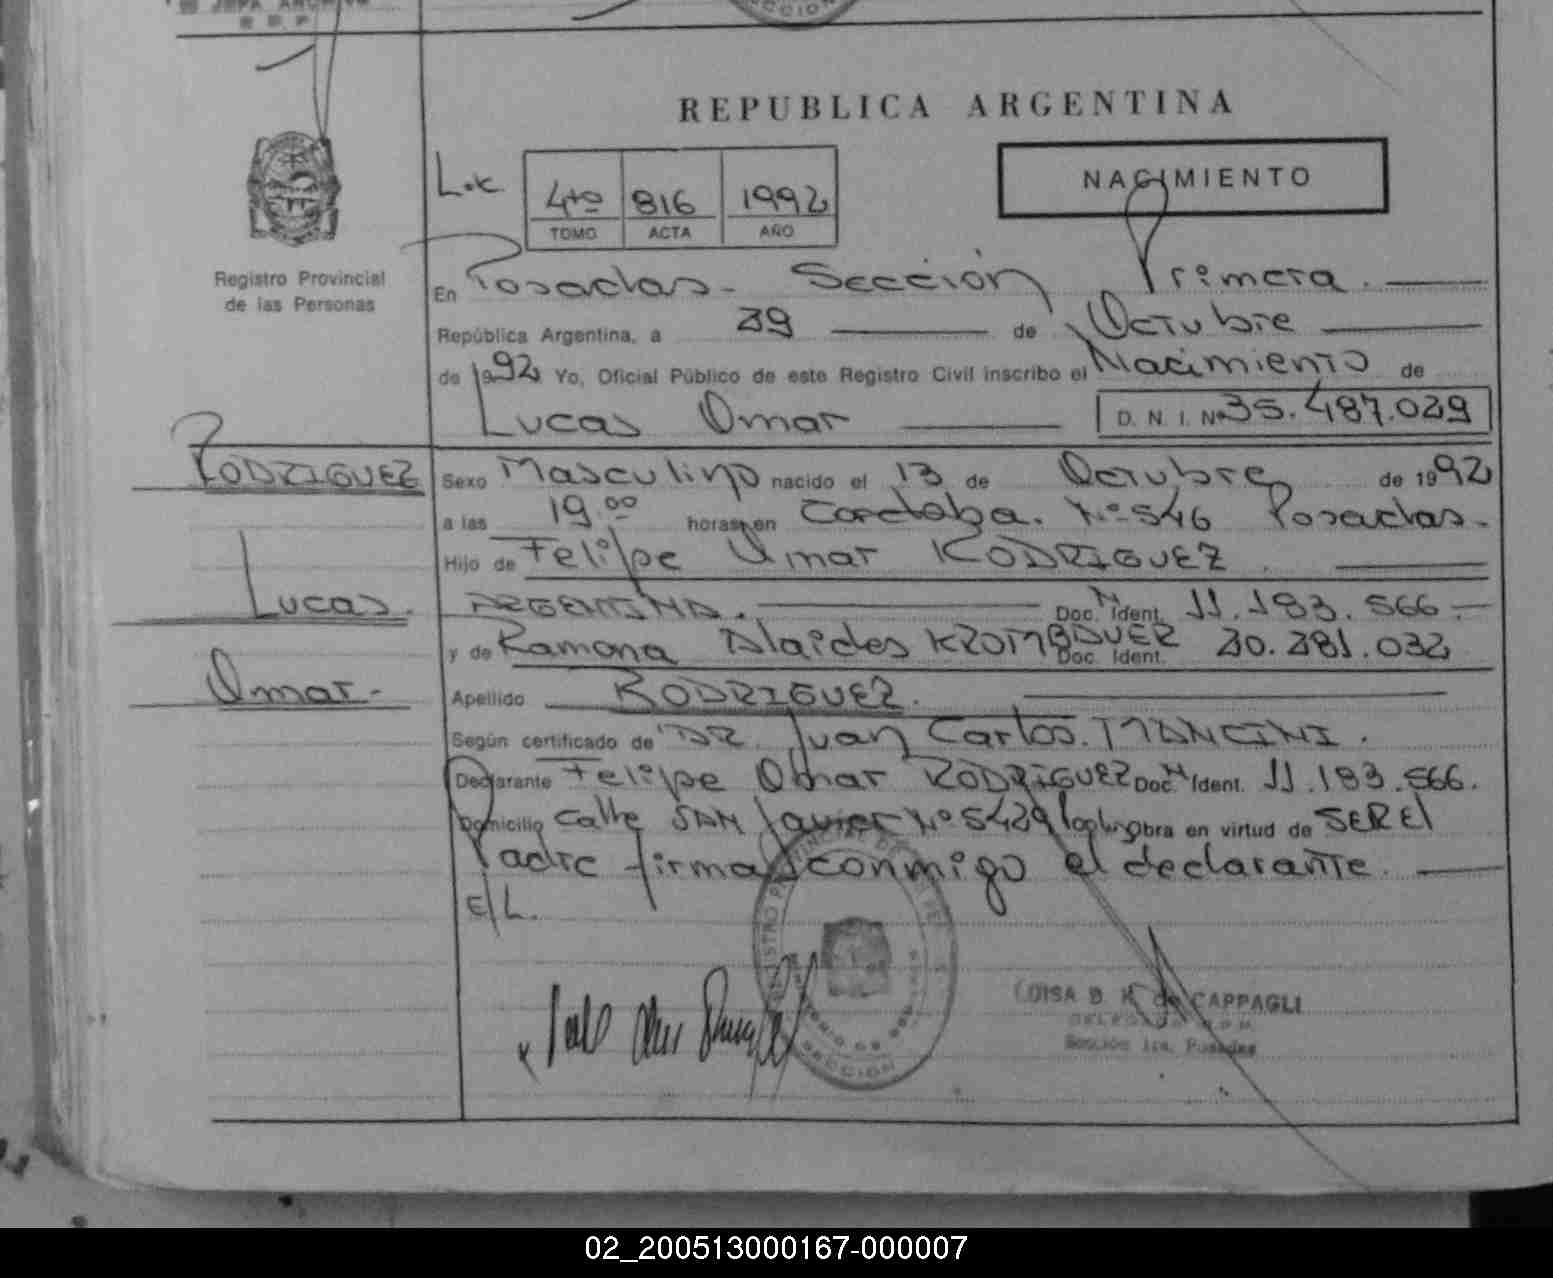 JEFA ARCHIVO
SECCION
REPUBLICA ARGENTINA
NACIMIENTO
4to 816 1992
TOMO ACTA AÑO
Registro Provincial
de las Personas
En Posadas - Sección Primera.
República Argentina, a 29 de Octubre
de 1992 Yo, Oficial Público de este Registro Civil inscribo el Nacimiento de
Lucas Omar D. N. I. Nº 35.487.029
RODRIGUEZ
Lucas.
Omar-
Sexo Masculino nacido el 13 de Octubre de 1992
a las 19.00 horas, en Cordoba. Nº 546 Posadas-
Hijo de Felipe Omar RODRIGUEZ.
ARGENTINA. Doc. N Ident. 11.183.566
y de Ramona Alaides Doc. Ident. 20.281.032
Apellido RODRIGUEZ.
Según certificado de DR. Juan Carlos. MANCINI.
Declarante Felipe Omar RODRIGUEZ Doc. N Ident. 11.183.566.
Domicilio calle SAN Javier Nº 5429 obra en virtud de SER El
Padre firma conmigo el declarante.
E/L.
SECCION
LUISA B. K. de CAPPAGLI
Sección 1ra. Posadas
02_200513000167-000007